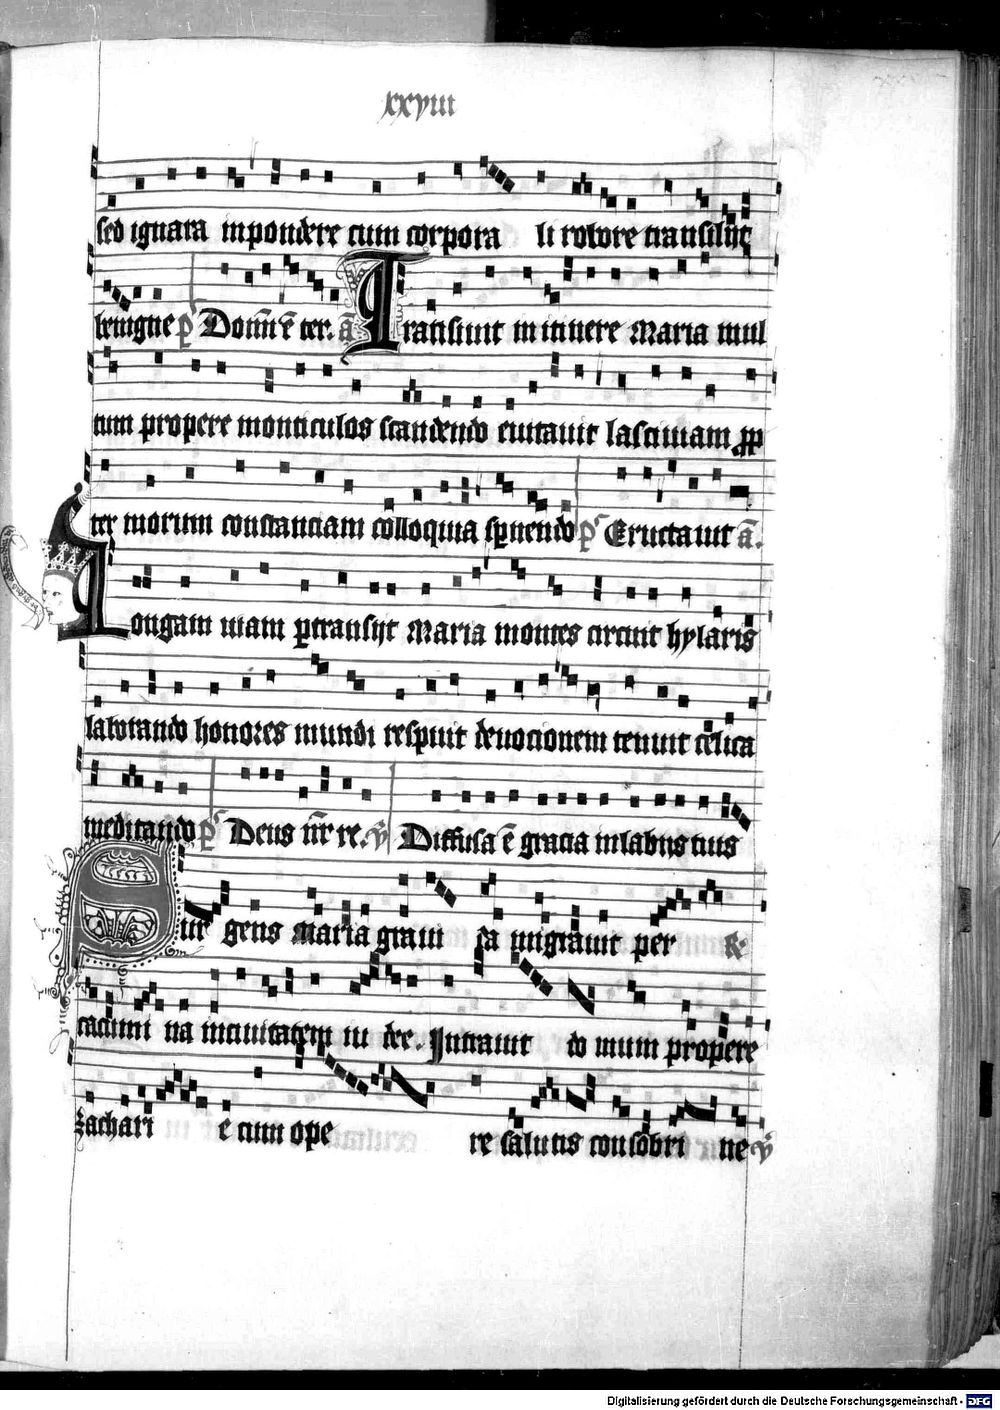 xxviii
sed ignara in pondere cum corpora li robore transilijt
benigne ps Domi e ter. a Transiuit in itinere Maria mul
tum propere monticulos scandendo euitauit lasciuiam pp
ter morum constanciam colloquia spnendo ps Eructauit a.
Longam uiam ptransijt Maria montes circuit hylaris
laborando honores mundi respuit deuocionem tenuit celica
meditando ps Deus nr re. v Diffusa e gracia in labijs tuis
Sur gens maria graui da migrauit per R.
cacumi na in ciuitatem iu dee. Intrauit do mum propere
zachari e cum ope re salutis consobri ne v
Digitalisierung gefördert durch die Deutsche Forschungsgemeinschaft - DFG